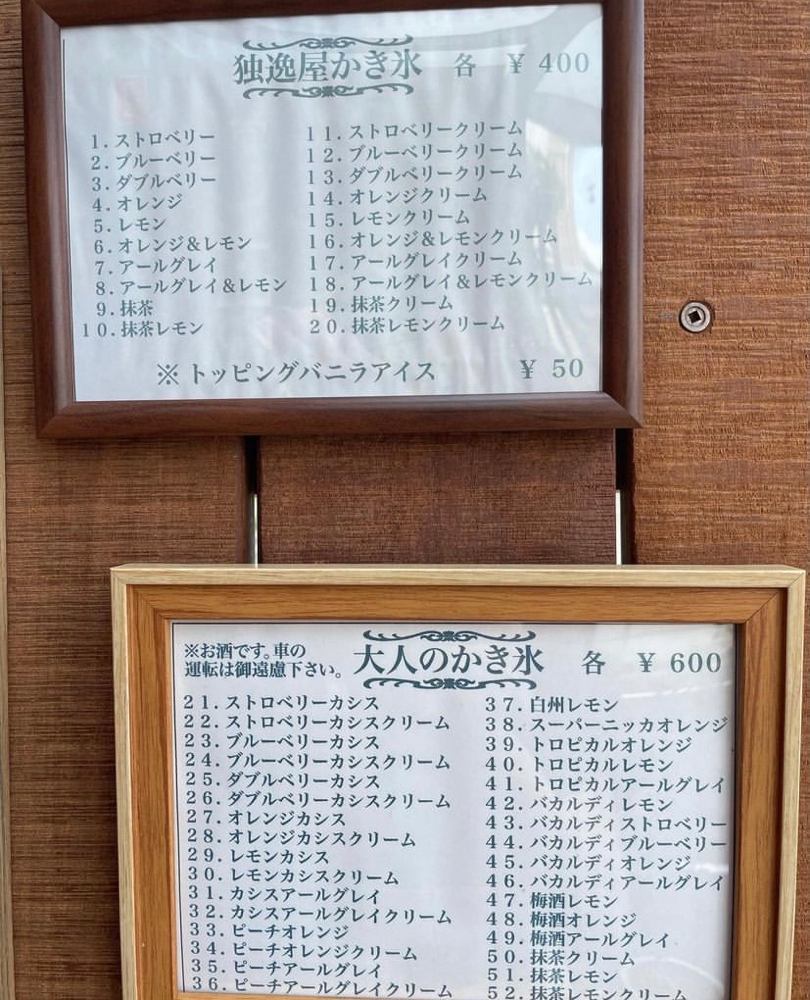 独逸屋かき氷 各 ¥ 400
1. ストロベリー
2. ブルーベリー
3. ダブルベリー
4. オレンジ
5. レモン
6. オレンジ&レモン
7. アールグレイ
8. アールグレイ&レモン
9. 抹茶
10. 抹茶レモン
11. ストロベリークリーム
12. ブルーベリークリーム
13. ダブルベリークリーム
14. オレンジクリーム
15. レモンクリーム
16. オレンジ&レモンクリーム
17. アールグレイクリーム
18. アールグレイ&レモンクリーム
19. 抹茶クリーム
20. 抹茶レモンクリーム
※ トッピングバニラアイス ¥ 50
※お酒です。車の
運転は御遠慮下さい。
大人のかき氷 各 ¥ 600
21. ストロベリーカシス
22. ストロベリーカシスクリーム
23. ブルーベリーカシス
24. ブルーベリーカシスクリーム
25. ダブルベリーカシス
26. ダブルベリーカシスクリーム
27. オレンジカシス
28. オレンジカシスクリーム
29. レモンカシス
30. レモンカシスクリーム
31. カシスアールグレイ
32. カシスアールグレイクリーム
33. ピーチオレンジ
34. ピーチオレンジクリーム
35. ピーチアールグレイ
36. ピーチアールグレイクリーム
37. 白州レモン
38. スーパーニッカオレンジ
39. トロピカルオレンジ
40. トロピカルレモン
41. トロピカルアールグレイ
42. バカルディレモン
43. バカルディストロベリー
44. バカルディブルーベリー
45. バカルディオレンジ
46. バカルディアールグレイ
47. 梅酒レモン
48. 梅酒オレンジ
49. 梅酒アールグレイ
50. 抹茶クリーム
51. 抹茶レモン
52. 抹茶レモンクリーム